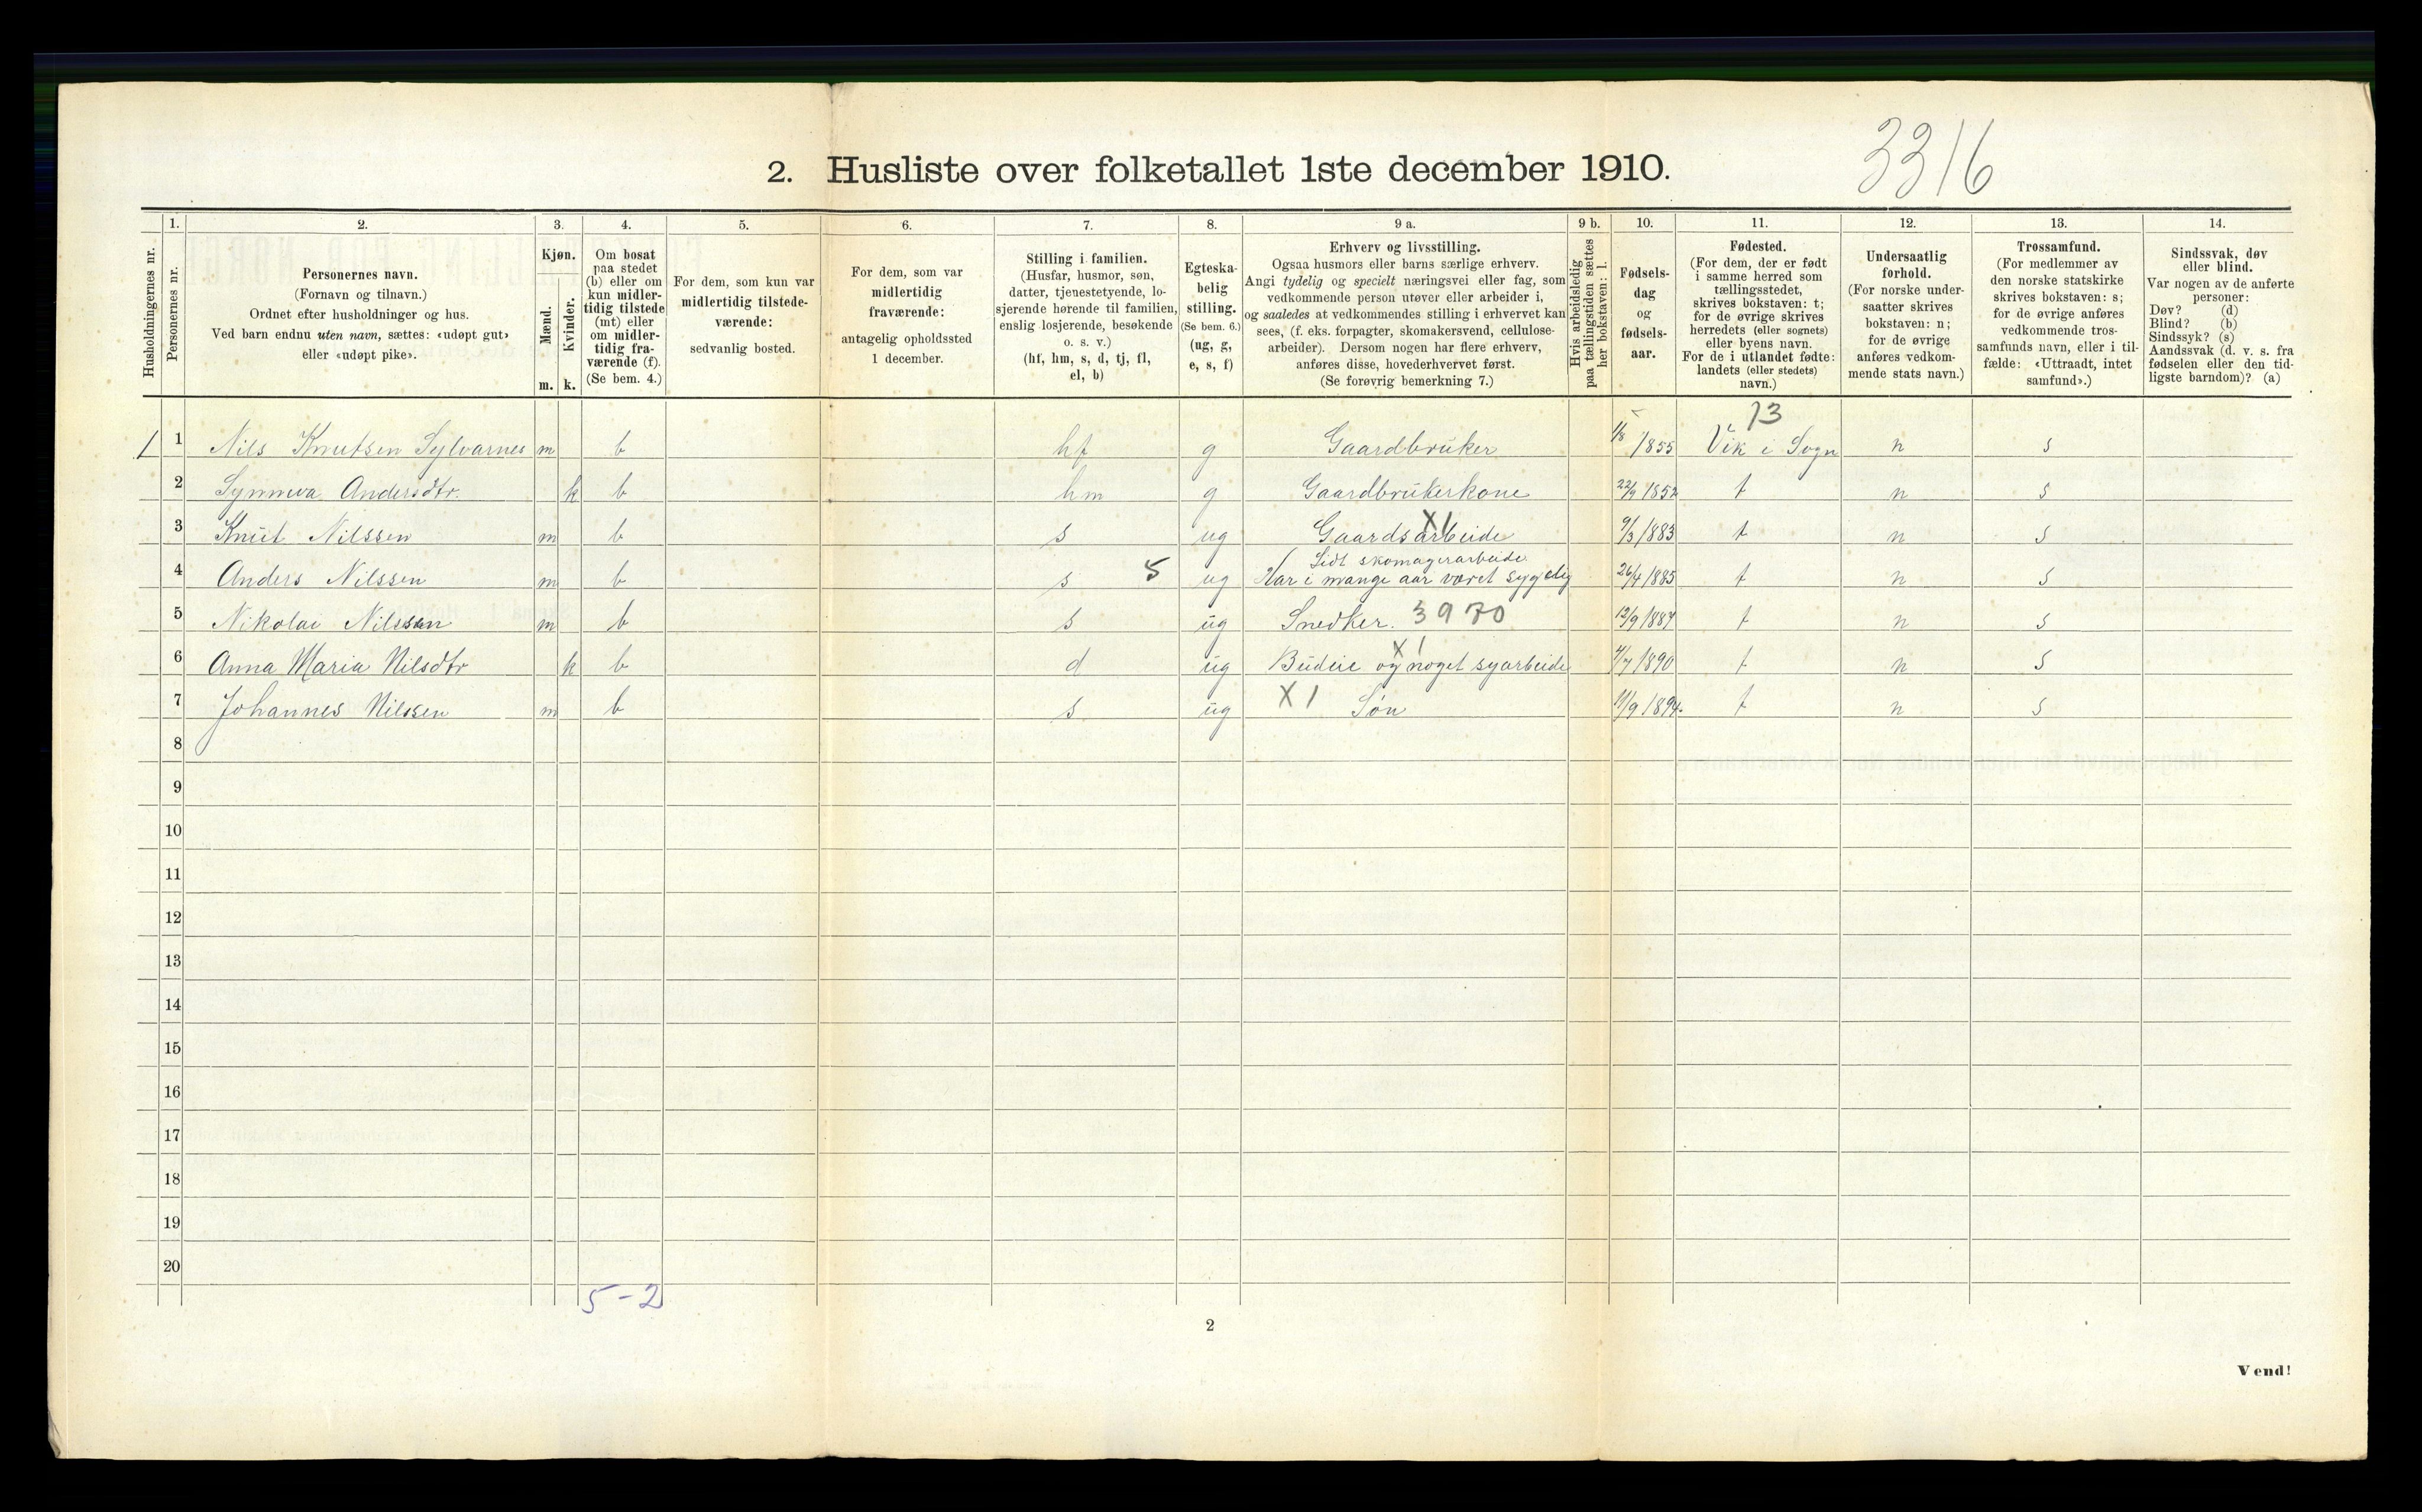 3316
2. Husliste over folketallet 1ste december 1910.
1. 2. 3. 4. 5. 6. 7. 8. 9 a. 9 b. 10. 11. 12. 13. 14.
Husholdningernes nr.
Personernes nr.
Personernes navn.
(Fornavn og tilnavn.)
Ordnet efter husholdninger og hus.
Ved barn endnu uten navn, sættes: «udøpt gut»
eller «udøpt pike».
Kjøn.
Mænd.
Kvinder.
m. k.
Om bosat
paa stedet
(b) eller om
kun midler-
tidig tilstede
(mt) eller
om midler-
tidig fra-
værende (f).
(Se bem. 4.)
For dem, som kun var
midlertidig tilstede-
værende:
sedvanlig bosted.
For dem, som var
midlertidig
fraværende:
antagelig opholdssted
1 december.
Stilling i familien.
(Husfar, husmor, søn,
datter, tjenestetyende, lo-
sjerende hørende til familien,
enslig losjerende, besøkende
o. s. v.)
(hf, hm, s, d, tj, fl,
el, b)
Egteska-
belig
stilling.
(Se bem. 6.)
(ug, g,
e, s, f)
Erhverv og livsstilling.
Ogsaa husmors eller barns særlige erhverv.
Angi tydelig og specielt næringsvei eller fag, som
vedkommende person utøver eller arbeider i,
og saaledes at vedkommendes stilling i erhvervet kan
sees, (f. eks. forpagter, skomakersvend, cellulose-
arbeider). Dersom nogen har flere erhverv,
anføres disse, hovederhvervet først.
(Se forøvrig bemerkning 7.)
Hvis arbeidsledig
paa tællingstiden sættes
her bokstaven: l.
Fødsels-
dag
og
fødsels-
aar.
Fødested.
(For dem, der er født
i samme herred som
tællingsstedet,
skrives bokstaven: t;
for de øvrige skrives
herredets (eller sognets)
eller byens navn.
For de i utlandet fødte:
landets (eller stedets)
navn.)
Undersaatlig
forhold.
(For norske under-
saatter skrives
bokstaven: n;
for de øvrige
anføres vedkom-
mende stats navn.)
Trossamfund.
(For medlemmer av
den norske statskirke
skrives bokstaven: s;
for de øvrige anføres
vedkommende tros-
samfunds navn, eller i til-
fælde: «Uttraadt, intet
samfund».)
Sindssvak, døv
eller blind.
Var nogen av de anførte
personer:
Døv? (d)
Blind? (b)
Sindssyk? (s)
Aandssvak (d. v. s. fra
fødselen eller den tid-
ligste barndom)? (a)
13
1 1 Nils Knutsen Sylvarnes m b hf g Gaardbruker 1/8 1855 Vik i Sogn n s
2 Synneva Andersdtr. k b hm g Gaardbrukerkone 22/9 1852 t n s
X1
3 Knut Nilssen m b s ug Gaardsarbeide 9/3 1883 t n s
Lidt skomagerarbeide
4 Anders Nilssen m b s 5 ug Har i mange aar været sygelig 26/4 1885 t n s
5 Nikolai Nilssen m b s ug Snedker. 3970 12/9 1887 t n s
X1
6 Anna Maria Nilsdtr k b d ug Budeie og noget syarbeide 4/7 1890 t n s
7 Johannes Nilssen m b s ug X1 Søn 11/9 1894. t n s
8
9
10
11
12
13
14
15
16
17
18
19
20
5-2
2
Vend!